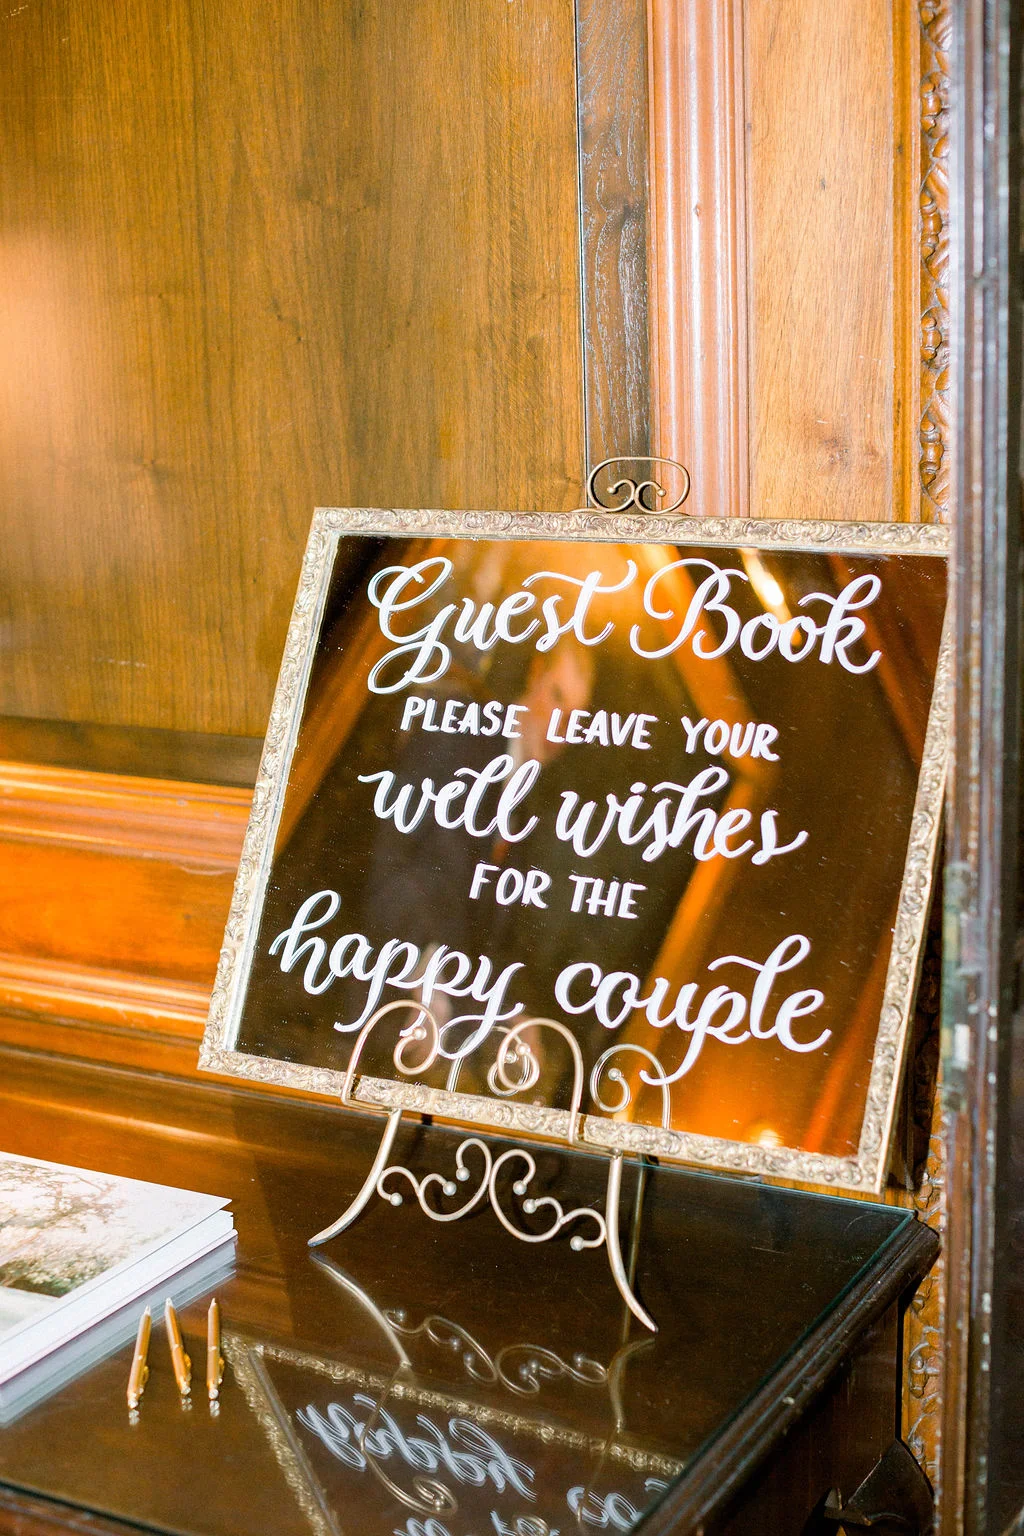 Guest Book
PLEASE LEAVE YOUR
well wishes
FOR THE
happy couple